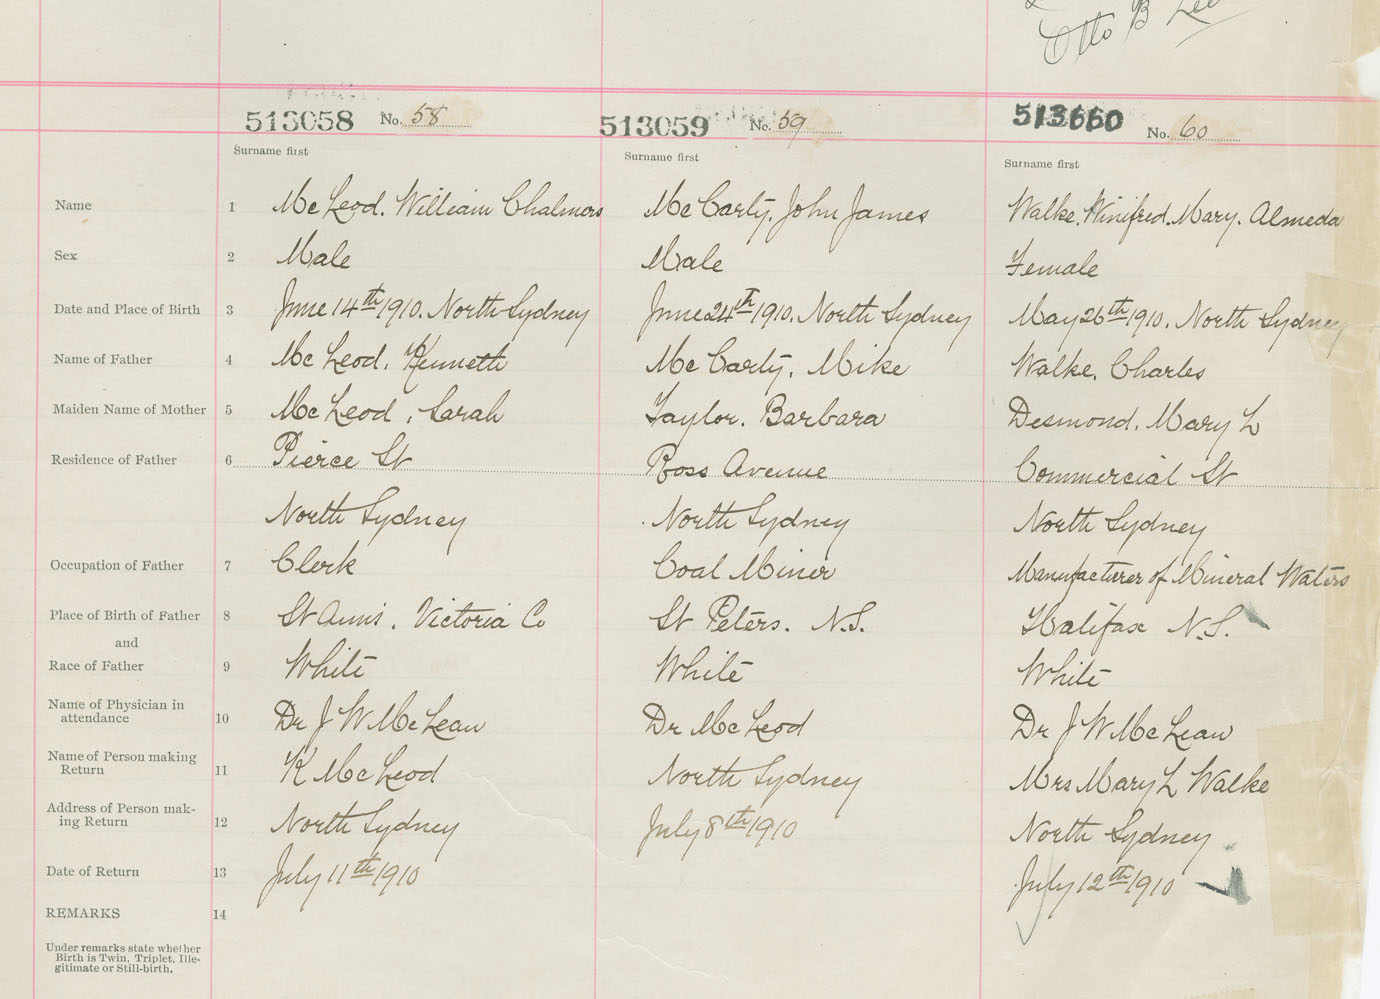 Otto B Lee
513058 No. 58 513059 No. 59 513660 No. 60
Surname first Surname first Surname first
Name 1 Mc Leod. William Chalmors Mc Carty, John James Walke. Winifred. Mary. Almeda
Sex 2 Male Male Female
Date and Place of Birth 3 June 14th 1910. North Sydney June 24th 1910. North Sydney May 26th 1910. North Sydney
Name of Father 4 Mc Leod. Kenneth Mc Carty. Mike Walke. Charles
Maiden Name of Mother 5 Mc Leod, Sarah Taylor. Barbara Desmond. Mary L
Residence of Father 6 Pierce St Ross Avenue Commercial St
North Sydney North Sydney North Sydney
Occupation of Father 7 Clerk Coal Miner Manufacturer of Mineral Waters
Place of Birth of Father 8 St Anns. Victoria Co St Peters. N.S. Halifax N.S.
and
Race of Father 9 White White White
Name of Physician in
attendance 10 Dr J W McLean Dr McLeod Dr J W McLean
Name of Person making
Return 11 K McLeod North Sydney Mrs Mary L Walke
Address of Person mak-
ing Return 12 North Sydney July 8th 1910 North Sydney
Date of Return 13 July 11th 1910 July 12th 1910
REMARKS 14
Under remarks state whether
Birth is Twin, Triplet, Ille-
gitimate or Still-birth.